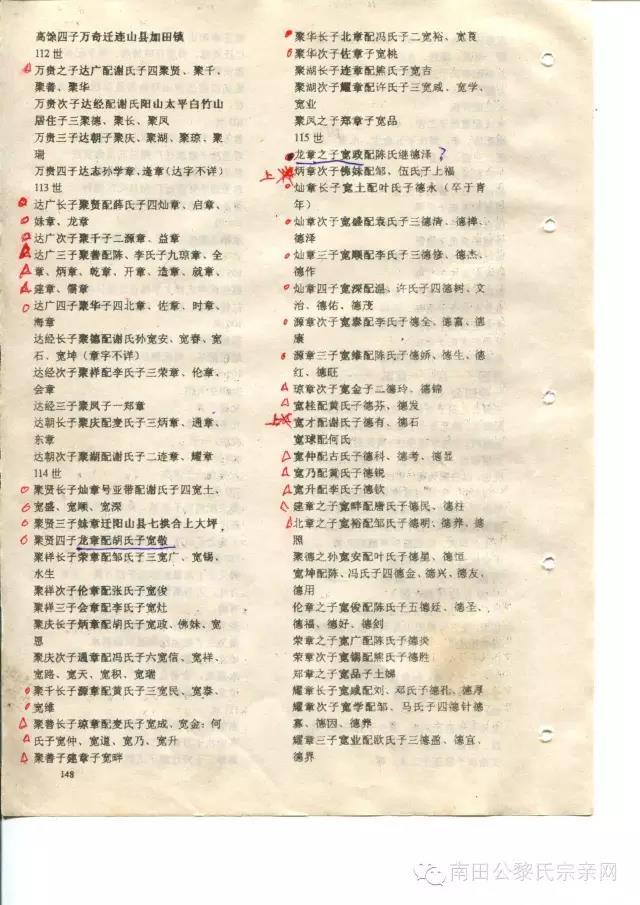 高馀四子万奇迁连山县加田镇
112世
万贵之子达广配谢氏子四聚贤、聚千、
聚善、聚华
万贵次子达经配谢氏阳山太平白竹山
居住子三聚德、聚长、聚凤
万贵三子达朝子聚庆、聚湖、聚琼、聚
瑞
万贵四子达志孙学章、逢章(达字不详)
113世
达广长子聚贤配薛氏子四灿章、启章、
妹章、龙章
达广次子聚千子二源章、益章
达广三子聚善配陈、李氏子九琼章、全
章、炳章、乾章、开章、造章、就章、
建章、儒章
达广四子聚华子四北章、佐章、时章、
海章
达经长子聚德配谢氏孙宽安、宽春、宽
石、宽坤(章字不详)
达经次子聚祥配李氏子三荣章、伦章、
会章
达经三子聚凤子一郑章
达朝长子聚庆配麦氏子三炳章、通章、
东章
达朝次子聚湖配谢氏子二连章、耀章
114世
聚贤长子灿章号亚带配谢氏子四宽土、
宽盛、宽顺、宽深
聚贤三子妹章迁阳山县七拱合上大坪
聚贤四子龙章配胡氏子宽敬
聚祥长子荣章配邹氏子三宽广、宽锡、
水生
聚祥次子伦章配张氏子宽俊
聚祥三子会章配李氏子宽灶
聚庆长子炳章配胡氏子宽政、佛妹、宽
恩
聚庆次子通章配冯氏子六宽信、宽祥、
宽路、宽天、宽积、宽瑞
聚千长子源章配黄氏子三宽民、宽泰、
宽维
聚善长子琼章配麦氏子宽成、宽金；何
氏子宽仲、宽道、宽乃、宽升
聚善子建章子宽畔
148
聚华长子北章配冯氏子二宽裕、宽良
聚华次子佐章子宽桃
聚湖长子连章配熊氏子宽吉
聚湖次子耀章配许氏子三宽咸、宽学、
宽业
聚凤之子郑章子宽品
115世
龙章之子宽政配陈氏继德泽?
上
炳章次子佛妹配邹、伍氏子上福
灿章长子宽土配叶氏子德永(卒于青
年)
灿章次子宽盛配袁氏子三德清、德禅、
德泽
灿章三子宽顺配李氏子三德修、德杰、
德作
灿章四子宽深配温、许氏子四德树、文
治、德佑、德茂
源章次子宽泰配李氏子德全、德富、德
康
源章三子宽维配陈氏子德娇、德生、德
红、德旺
琼章次子宽金子二德玲、德锦
宽桂配黄氏子德芬、德发
上
宽才配谢氏子德有、德石
宽球配何氏
宽仲配古氏子德科、德考、德显
宽乃配黄氏子德锐
宽升配李氏子德钦
建章之子宽畔配唐氏子德民、德柱
北章之子宽裕配邹氏子德明、德养、德
照
聚德之孙宽安配叶氏子德星、德恒
宽坤配陈、冯氏子四德金、德兴、德友、
德用
伦章之子宽俊配陈氏子五德廷、德圣、
德福、德好、德剑
荣章之子宽广配陈氏子德炎
荣章次子宽锡配熊氏子德胜
郑章之子宽品子土娣
耀章长子宽咸配刘、邓氏子德孔、德厚
耀章次子宽学配邹、马氏子四德针德
寡、德因、德养
耀章三子宽业配欧氏子三德盈、德宜、
德界
南田公黎氏宗亲网